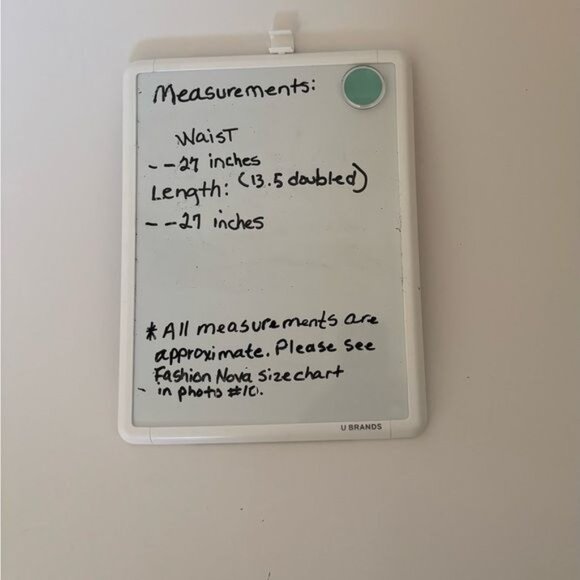 Measurements:
Waist
--27 inches
Length: (13.5 doubled)
--27 inches
*All measurements are
approximate. Please see
Fashion Nova size chart
- in photo #10.
U BRANDS